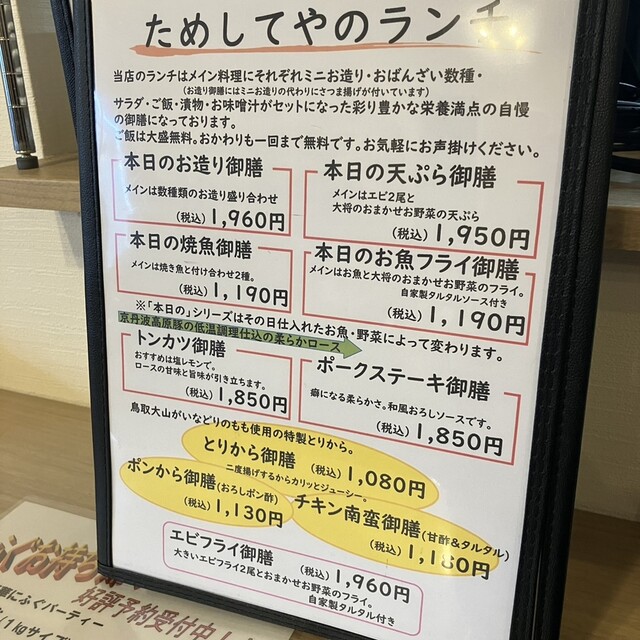 ためしてやのランチ
当店のランチはメイン料理にそれぞれミニお造り・おばんざい数種・
(お造り御膳にはミニお造りの代わりにさつま揚げが付いています)
サラダ・ご飯・漬物・お味噌汁がセットになった彩り豊かな栄養満点の自慢
の御膳になっております。
ご飯は大盛無料。おかわりも一回まで無料です。お気軽にお声掛けください。
本日のお造り御膳
メインは数種類のお造り盛り合わせ
(税込) 1,960円
本日の天ぷら御膳
メインはエビ2尾と
大将のおまかせお野菜の天ぷら
(税込) 1,950円
本日の焼魚御膳
メインは焼き魚と付け合わせ2種。
(税込) 1,190円
本日のお魚フライ御膳
メインはお魚と大将のおまかせお野菜のフライ。
自家製タルタルソース付き
(税込) 1,190円
※「本日の」シリーズはその日仕入れたお魚・野菜によって変わります。
京丹波高原豚の低温調理仕込の柔らかロース
トンカツ御膳
おすすめは塩レモンで。
ロースの甘味と旨味が引き立ちます。
(税込) 1,850円
ポークステーキ御膳
癖になる柔らかさ。和風おろしソースです。
(税込) 1,850円
鳥取大山がいなどりのもも使用の特製とりから。
とりから御膳
(税込) 1,080円
二度揚げするからカリッとジューシー。
ポンから御膳(おろしポン酢)
(税込) 1,130円
チキン南蛮御膳(甘酢&タルタル)
(税込) 1,180円
エビフライ御膳
(税込) 1,960円
大きいエビフライ2尾とおまかせお野菜のフライ。
自家製タルタル付き
好評予約受付中!
にふくパーティー
1kgサイズ